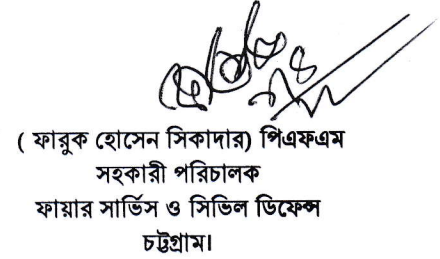 ( ফারুক হোসেন সিকাদার) পিএফএম
সহকারী পরিচালক
ফায়ার সার্ভিস ও সিভিল ডিফেন্স
চট্টগ্রাম।